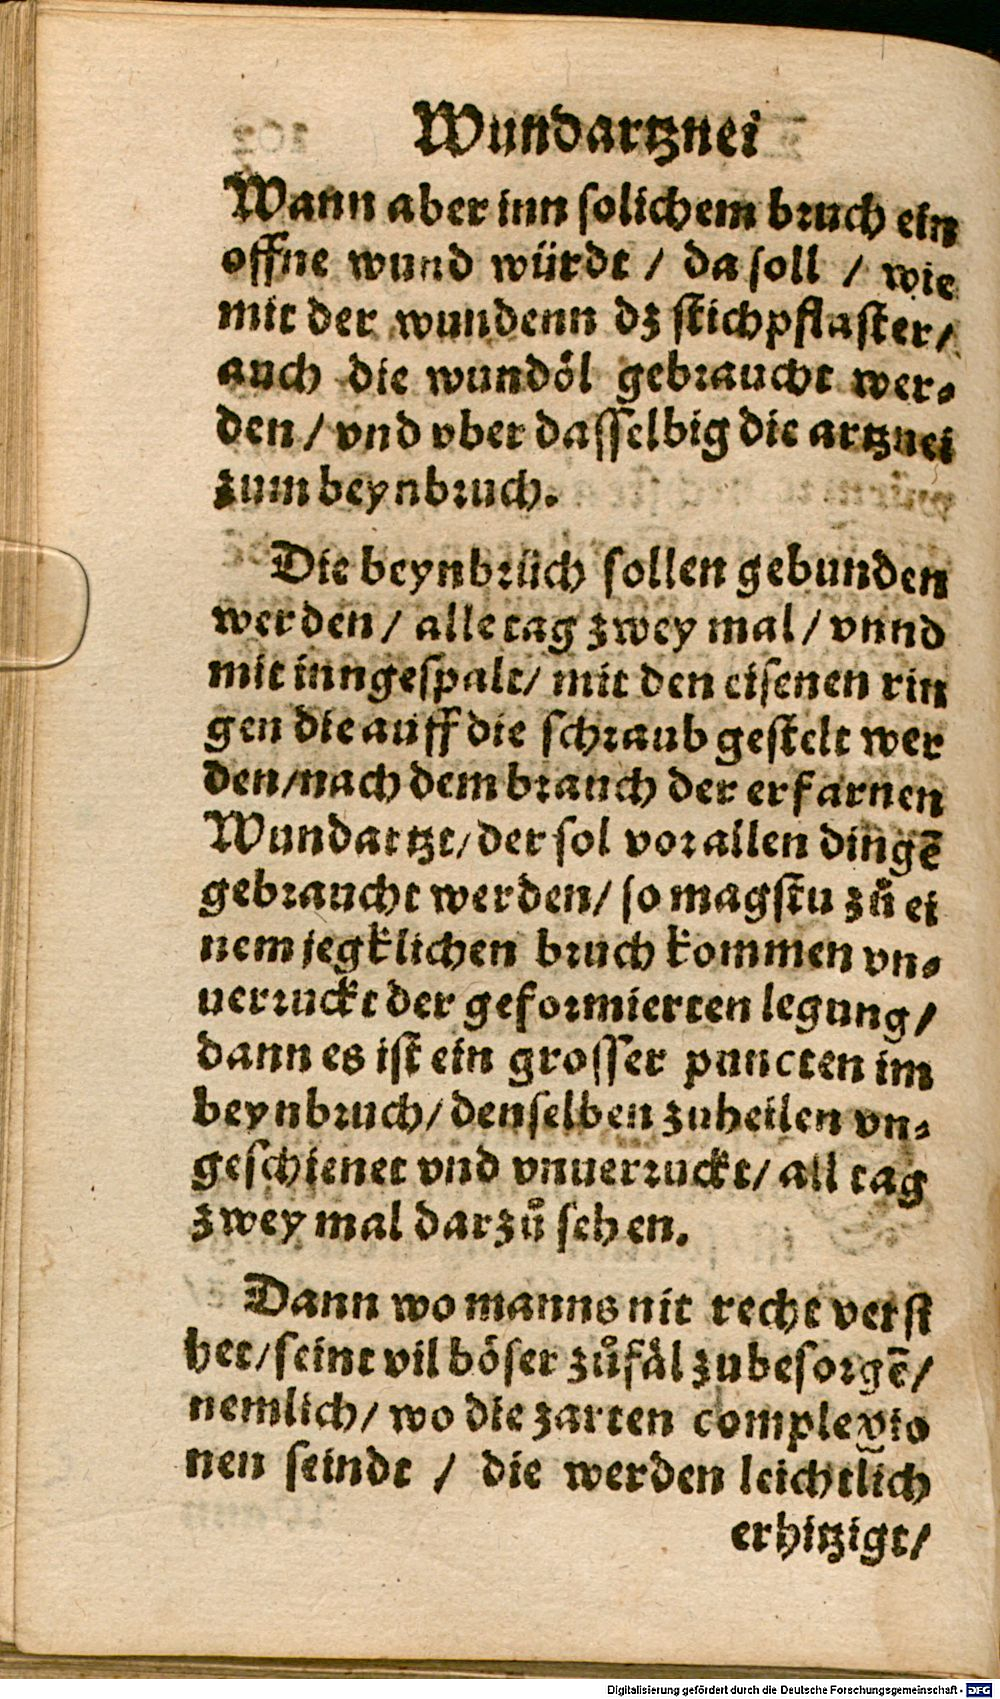 Wundartznei
Wann aber inn solichem bruch ein
offne wund würdt / da soll / wie
mit der wundenn dz stichpflaster/
auch die wundöl gebraucht wer⸗
den / vnd vber dasselbig die artznei
zum beynbruch.
Die beynbrüch sollen gebunden
werden / alle tag zwey mal / vnnd
mit inngespalt/ mit den eisenen rin
gen die auff die schraub gestelt wer
den/nach dem brauch der erfarnen
Wundartzt/ der sol vor allen dingē
gebraucht werden/ so magstu zů ei
nem jegklichen bruch kommen vn⸗
uerruckt der geformierten legung/
dann es ist ein grosser puncten im
beynbruch/ denselben zuheilen vn⸗
geschienet vnd vnuerruckt/ all tag
zwey mal darzů sehen.
Dann wo manns nit recht verst
het/ seint vil böser zůfäl zubesorgē/
nemlich/ wo die zarten complexio
nen seindt / die werden leichtlich
erhitzigt/
Digitalisierung gefördert durch die Deutsche Forschungsgemeinschaft - DFG